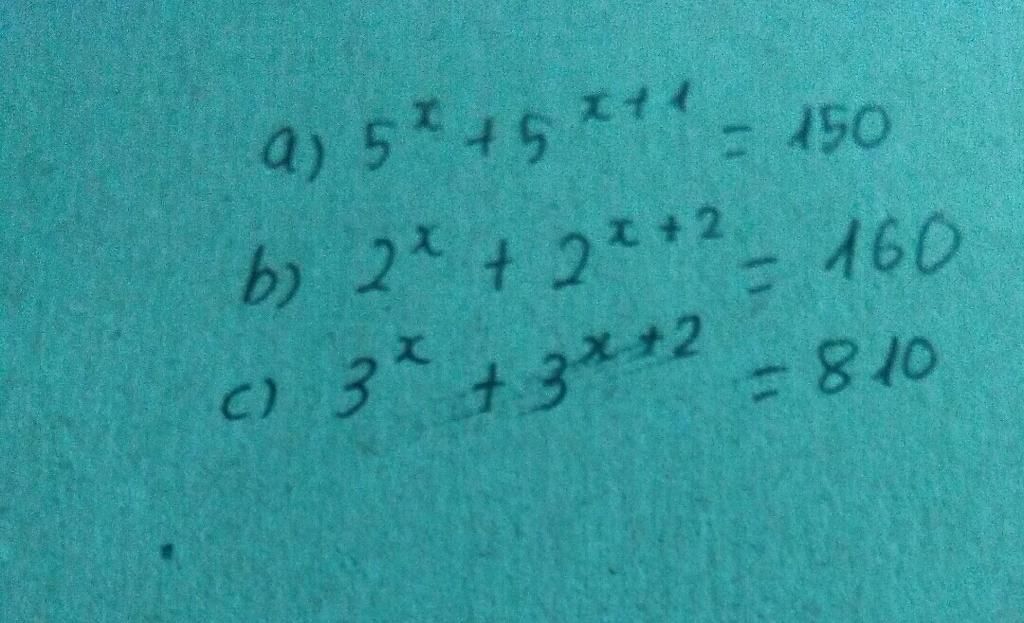 a) 5^x + 5^{x+1} = 150
b) 2^x + 2^{x+2} = 160
c) 3^x + 3^{x+2} = 810